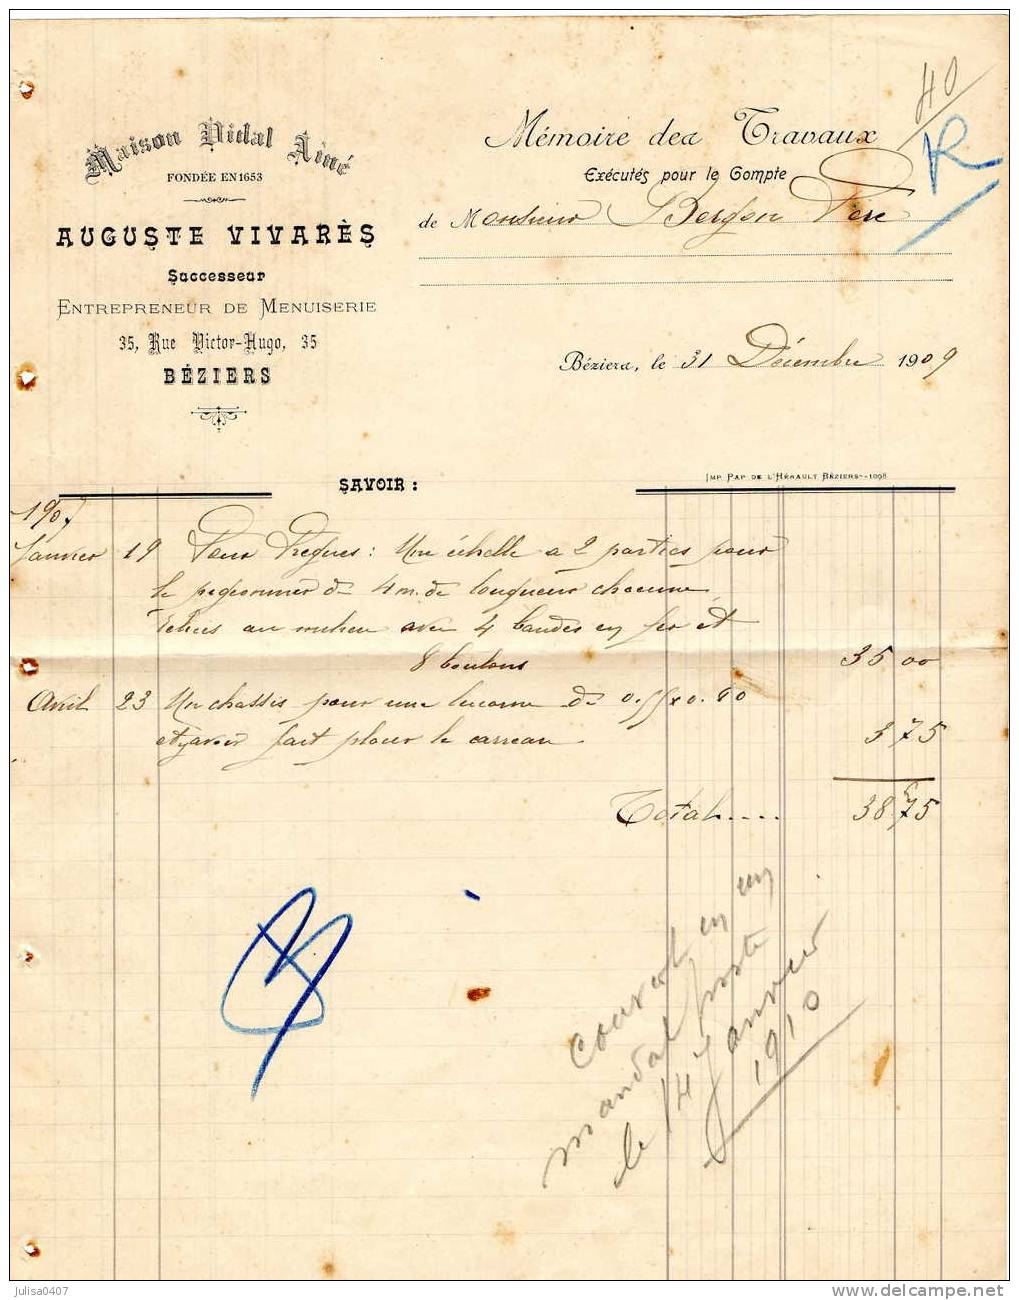 Maison Vidal Ainé
FONDÉE EN 1653
AUGUSTE VIVARÈS
Successeur
ENTREPRENEUR DE MENUISERIE
35, Rue Victor-Hugo, 35
BÉZIERS
40
Mémoire des Travaux
Exécutés pour le Compte
de Monsieur Bergon Père
Béziers, le 31 Décembre 1909
SAVOIR :
IMP PAP DE L'HÉRAULT BÉZIERS--1098
1907
Janvier 19 Pour Prègnes : Une échelle a 2 parties pour
le pigeonnier de 4 m. de longueur chacune
au milieu avec 4 bandes en fer et
8 boulons 35 00
Avril 23 Un chassis pour une lucarne de 0.55x0.60
et y avoir fait placer le carreau 3 75
Total.... 38 75
couvert en un
mandat poste
le 14 Janvier
1910
julisa0407
www.delcampe.net